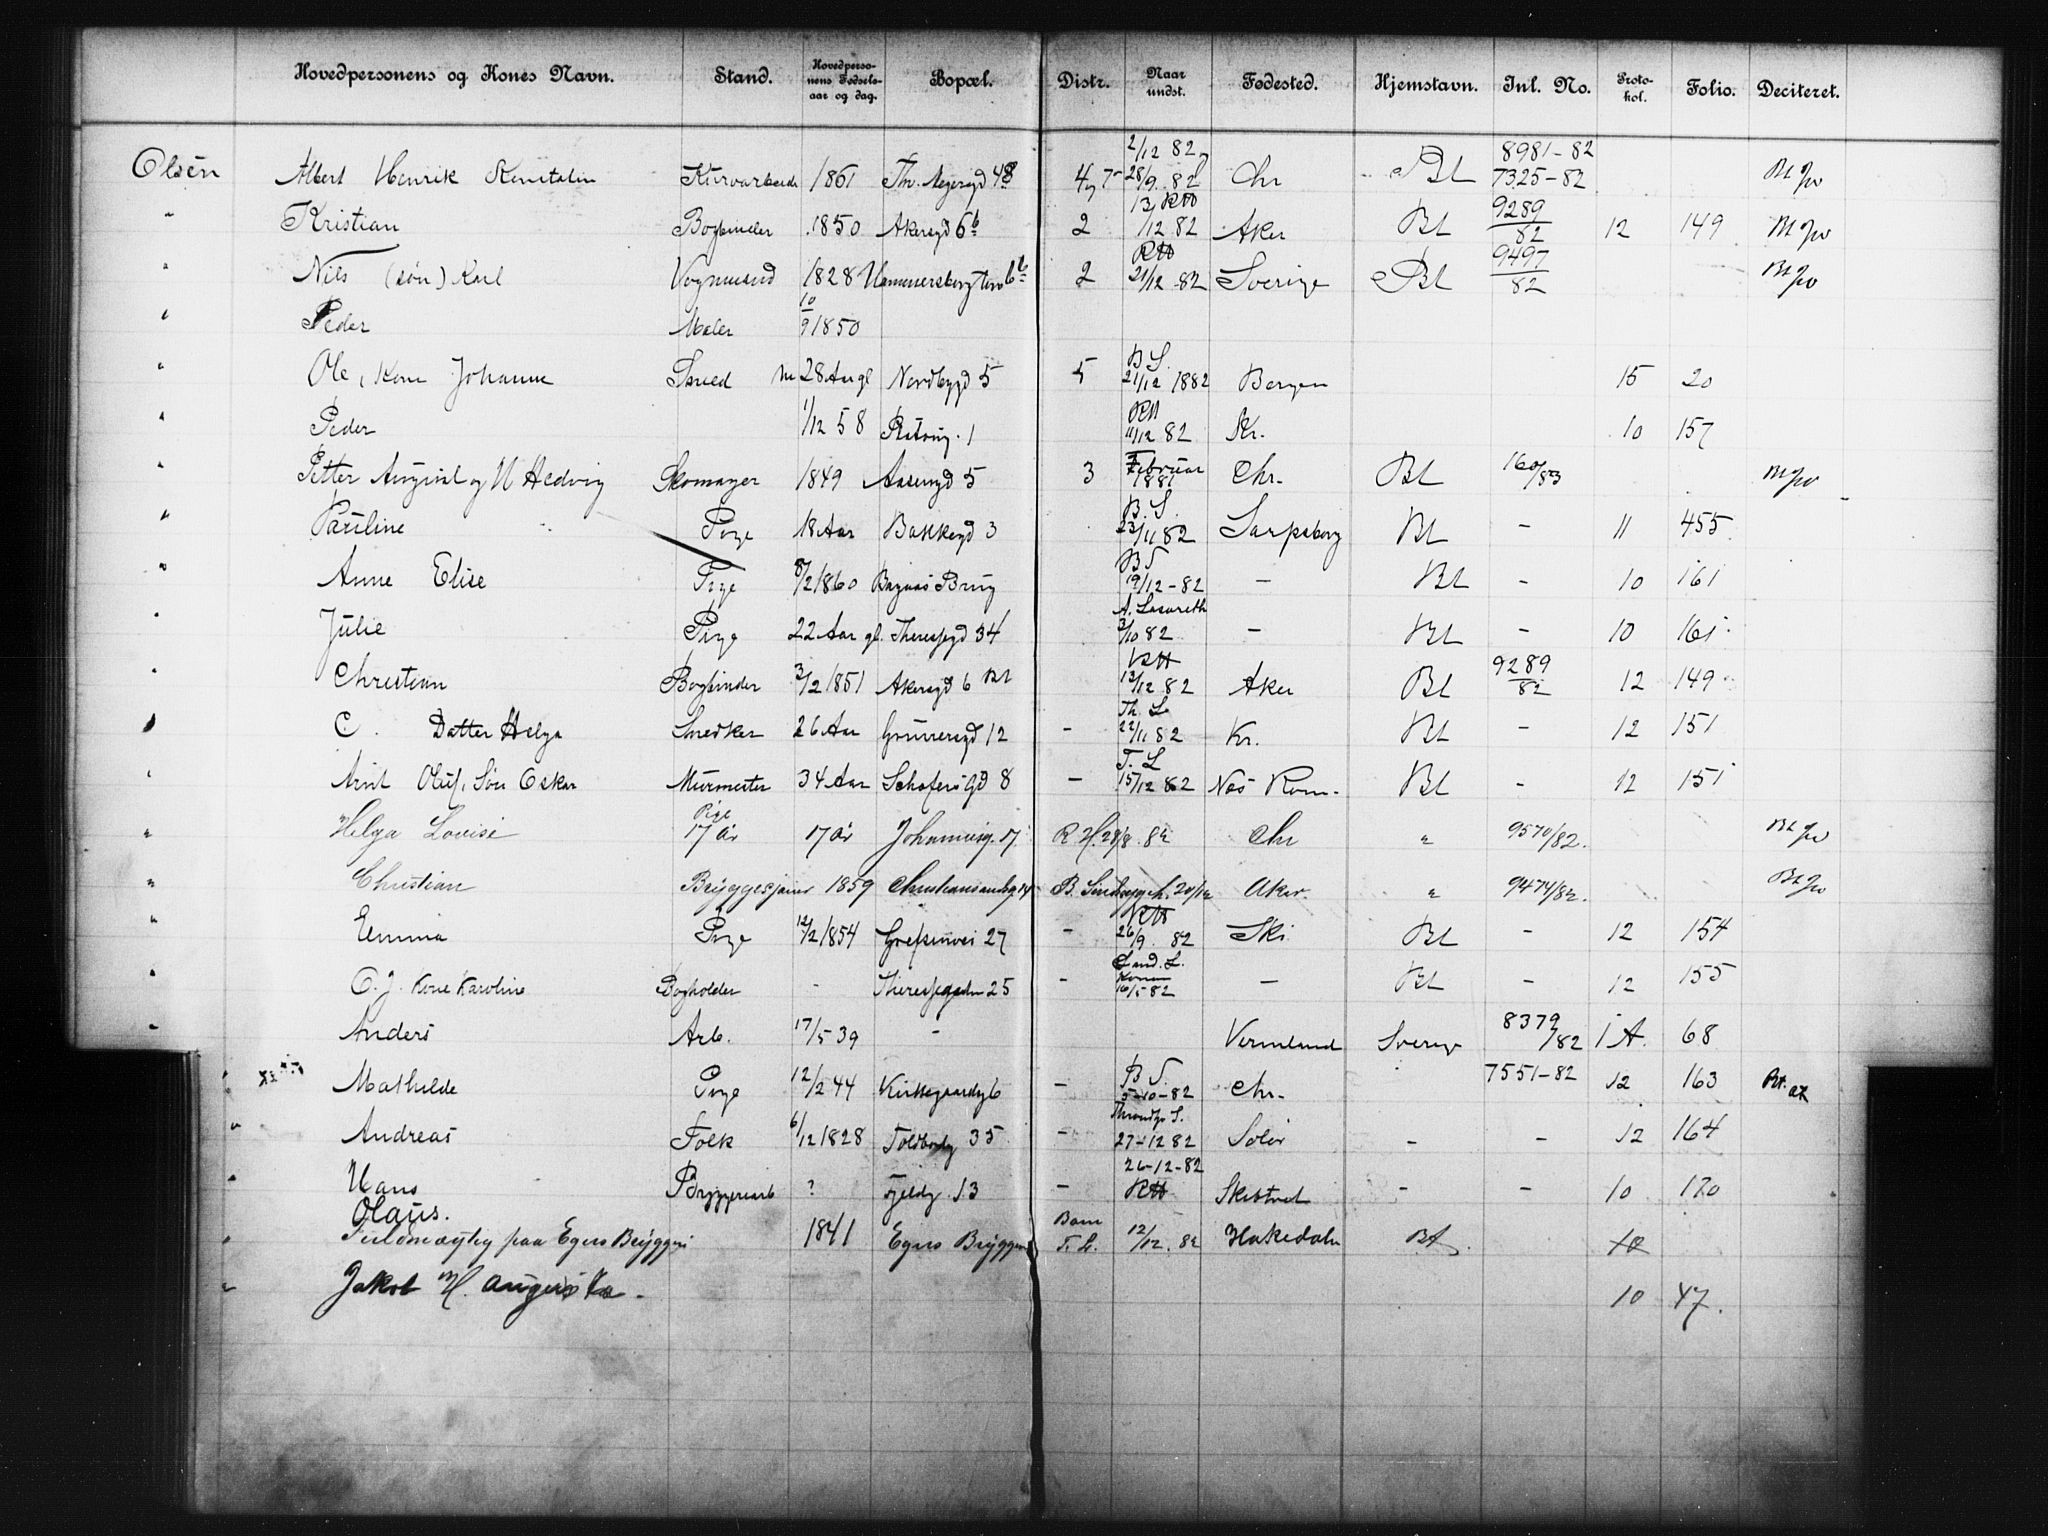 Hovedpersonens og Kones Navn. Stand. Hovedperso-nens Fødsels-aar og dag. Bopæl. Distr. Naar undst. Fødested. Hjemstavn. Inl. No. Proto-kol. Folio. Deciteret.
2/12 82 8981-82
Olsen Albert Henrik 1861 4 7 28/9 82 Chr Bl 7325-82
" Kristian Bogbinder 1850 Akersgd 6b 2 13/12 82 RH Aker Bl 9289/82 12 149
" Nils (søn) Karl Vognmand 1828 2 RH 21/12 82 Sverige Bl 9497/82
" Peder Maler 10/9 1850
" Ole, Kone Johanne Smed 28 Aar gl Nordbygd 5 5 B S. 21/12 1882 Bergen 15 20
" Peder 1/12 58 1 RH 11/12 82 Kr. 10 157
" Petter August og H Hedvig Skomager 1849 Aasengd 5 3 Februar 1881 Chr. Bl 160/83
" Pauline Pige 18 Aar Bakkegd 3 B. S. 23/11 82 Sarpsborg Bl - 11 455
" Anne Elise Pige 8/2 1860 Brug B S 19/12-82 - Bl - 10 161
" Julie Pige 22 Aar gl. Theresesgd 34 A. Lasareth 3/10 82 - Bl - 10 161
" Christian Bogbinder 3/2 1851 Akersgd 6 Bl RH 13/12 82 Aker Bl 9289/82 12 149
" C. Datter Helga Snedker 26 Aar Grünersgd 12 - Th. L 22/11 82 Kr. Bl - 12 151
" Arnt Oluf, Søn Oskar Murmester 34 Aar Schafers Gd 8 - T. L 15/12 82 Nes Rom. Bl - 12 151
" Helga Lovise Pige 17 år 17 år Johannesg. 17 R H. 28/8. 82 Chr " 9570/82.
" Christian Bryggesjauer 1859 Christiansandsg 14 B. 20/12 Aker. " 9474/82.
" Emma Pige 12/2 1854 Grefsenvei 27 - RH 26/9. 82 Ski Bl - 12 154
" C. J. Kone Karoline Bogholder - Theresesgaden 25 - Sand. L. Konen 16/5 82 - Bl - 12 155
" Anders Arb. 17/5 39 - Vermland Sverige 8379/82 1 A. 68
" Mathilde Pige 12/2 44 Kirkegaardsg 6 - B S. 5-10-82 Chr. 7551-82 12 163
" Andreas Folk 6/12 1828 Toldbodg 35 - 27-12 82 Solør - - 12 164
" Hans Bryggeriarb ? Fjeldg. 13 - 26-12-82 RH Skibtvet - - 10 170
Olaus.
" Fuldmægtig paa Egers Bryggeri 1841 Egers Bryggeri T. L. 12/12. 82 Hakedalen Bl. 10
" Jakob M. Augusta. 10 47.